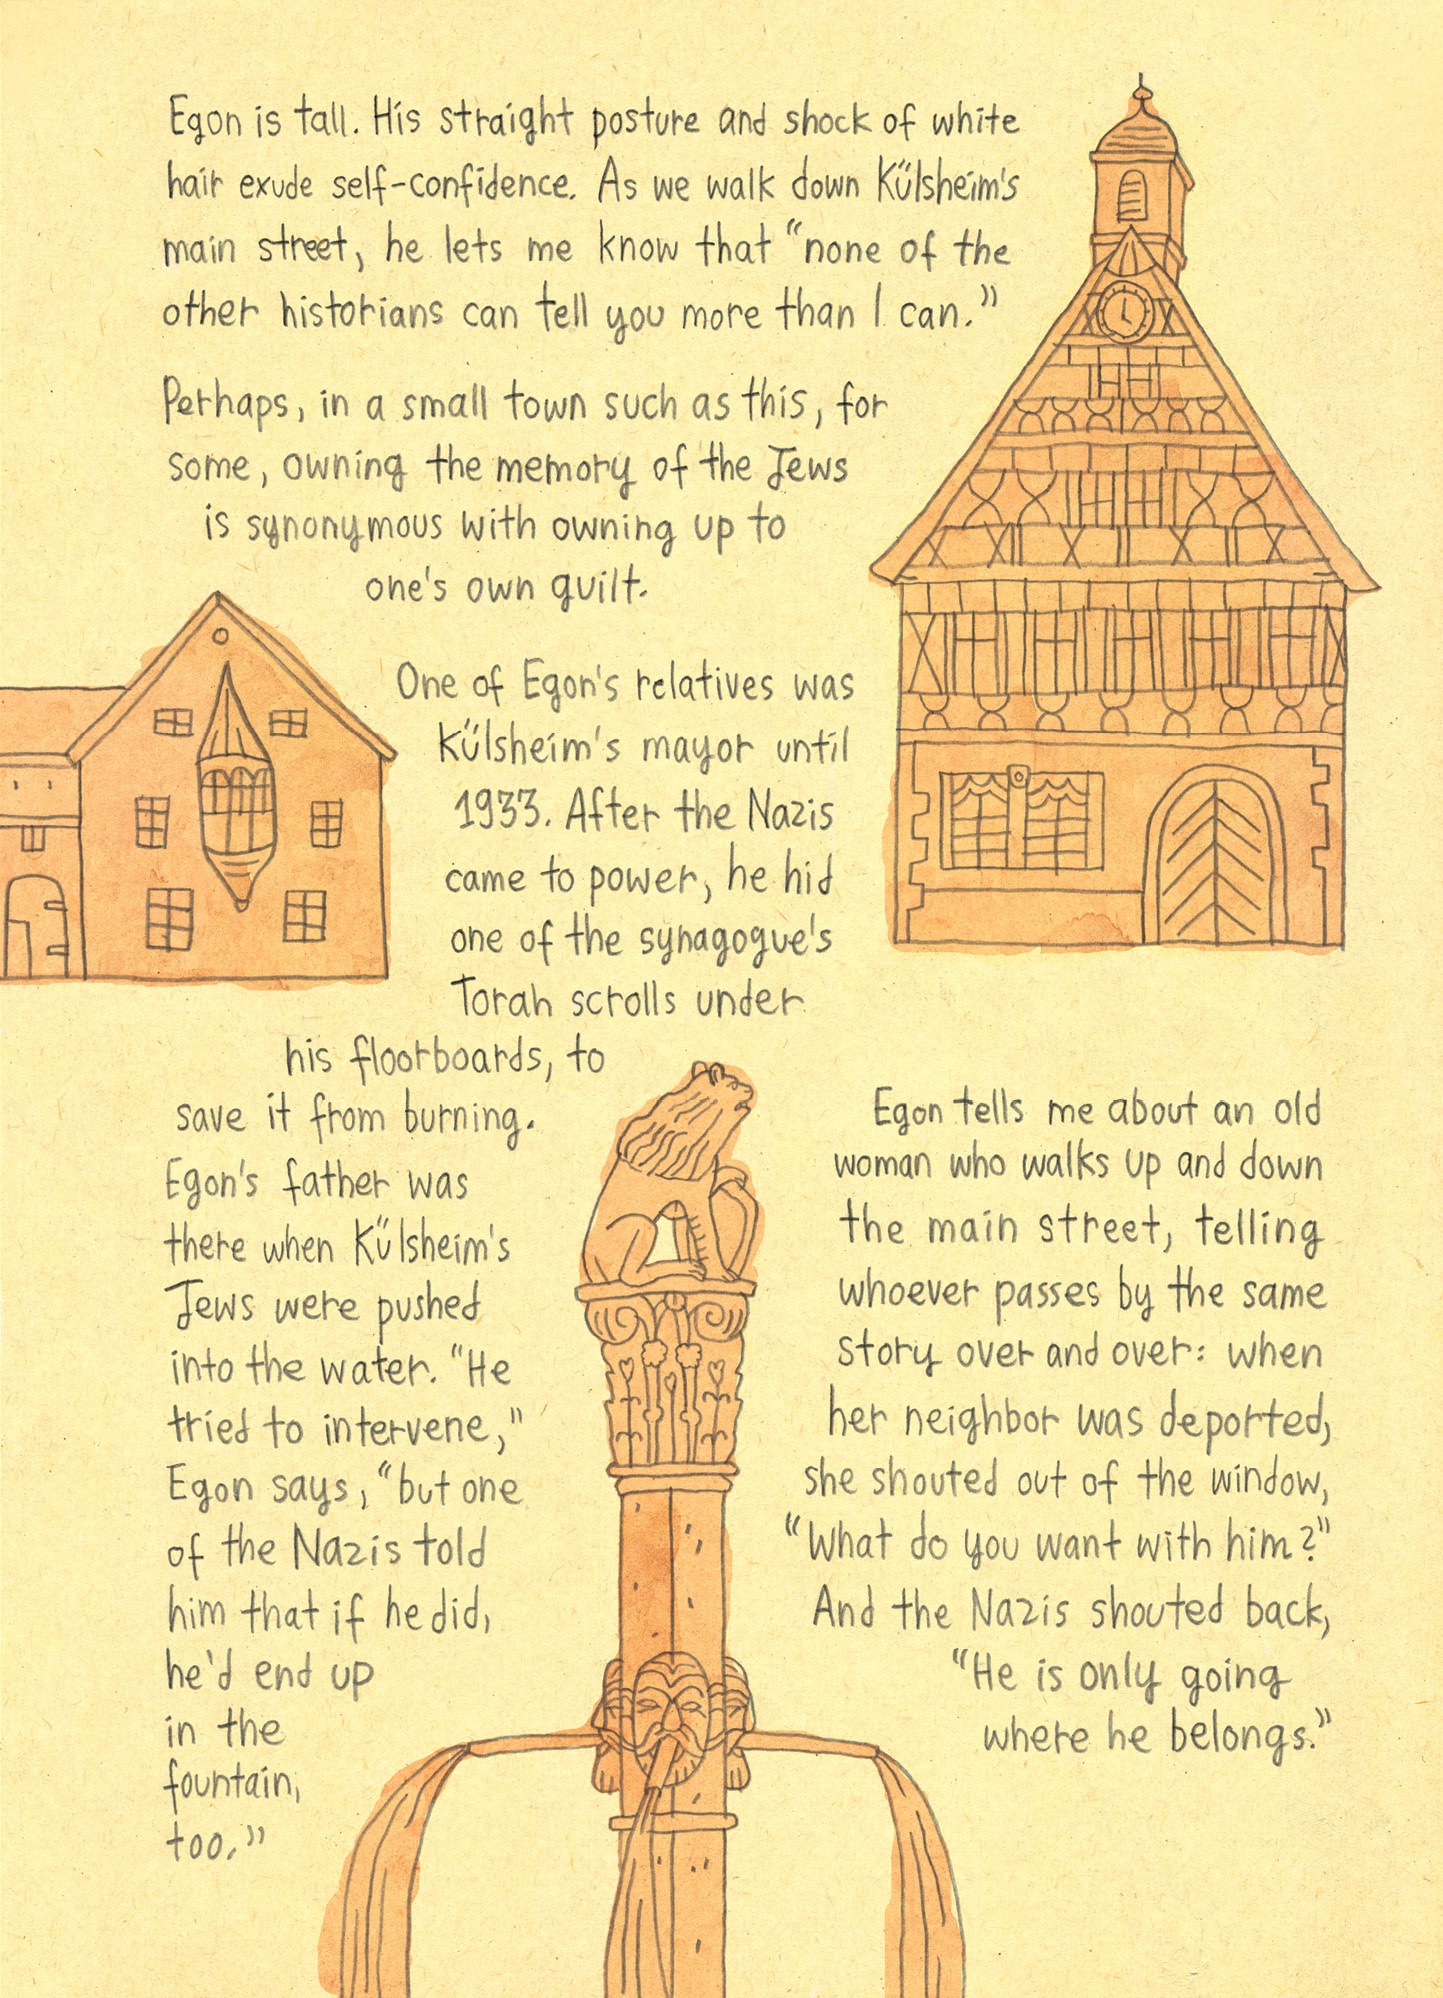 Egon is tall. His straight posture and shock of white
hair exude self-confidence. As we walk down Külsheim's
main street, he lets me know that "none of the
other historians can tell you more than I can."
Perhaps, in a small town such as this, for
some, owning the memory of the Jews
is synonymous with owning up to
one's own guilt.
One of Egon's relatives was
Külsheim's mayor until
1933. After the Nazis
came to power, he hid
one of the synagogue's
Torah scrolls under
his floorboards, to
save it from burning.
Egon's father was
there when Külsheim's
Jews were pushed
into the water. "He
tried to intervene,"
Egon says, "but one
of the Nazis told
him that if he did,
he'd end up
in the
fountain,
too."
Egon tells me about an old
woman who walks up and down
the main street, telling
whoever passes by the same
story over and over: when
her neighbor was deported,
she shouted out of the window,
"What do you want with him?"
And the Nazis shouted back,
"He is only going
where he belongs."